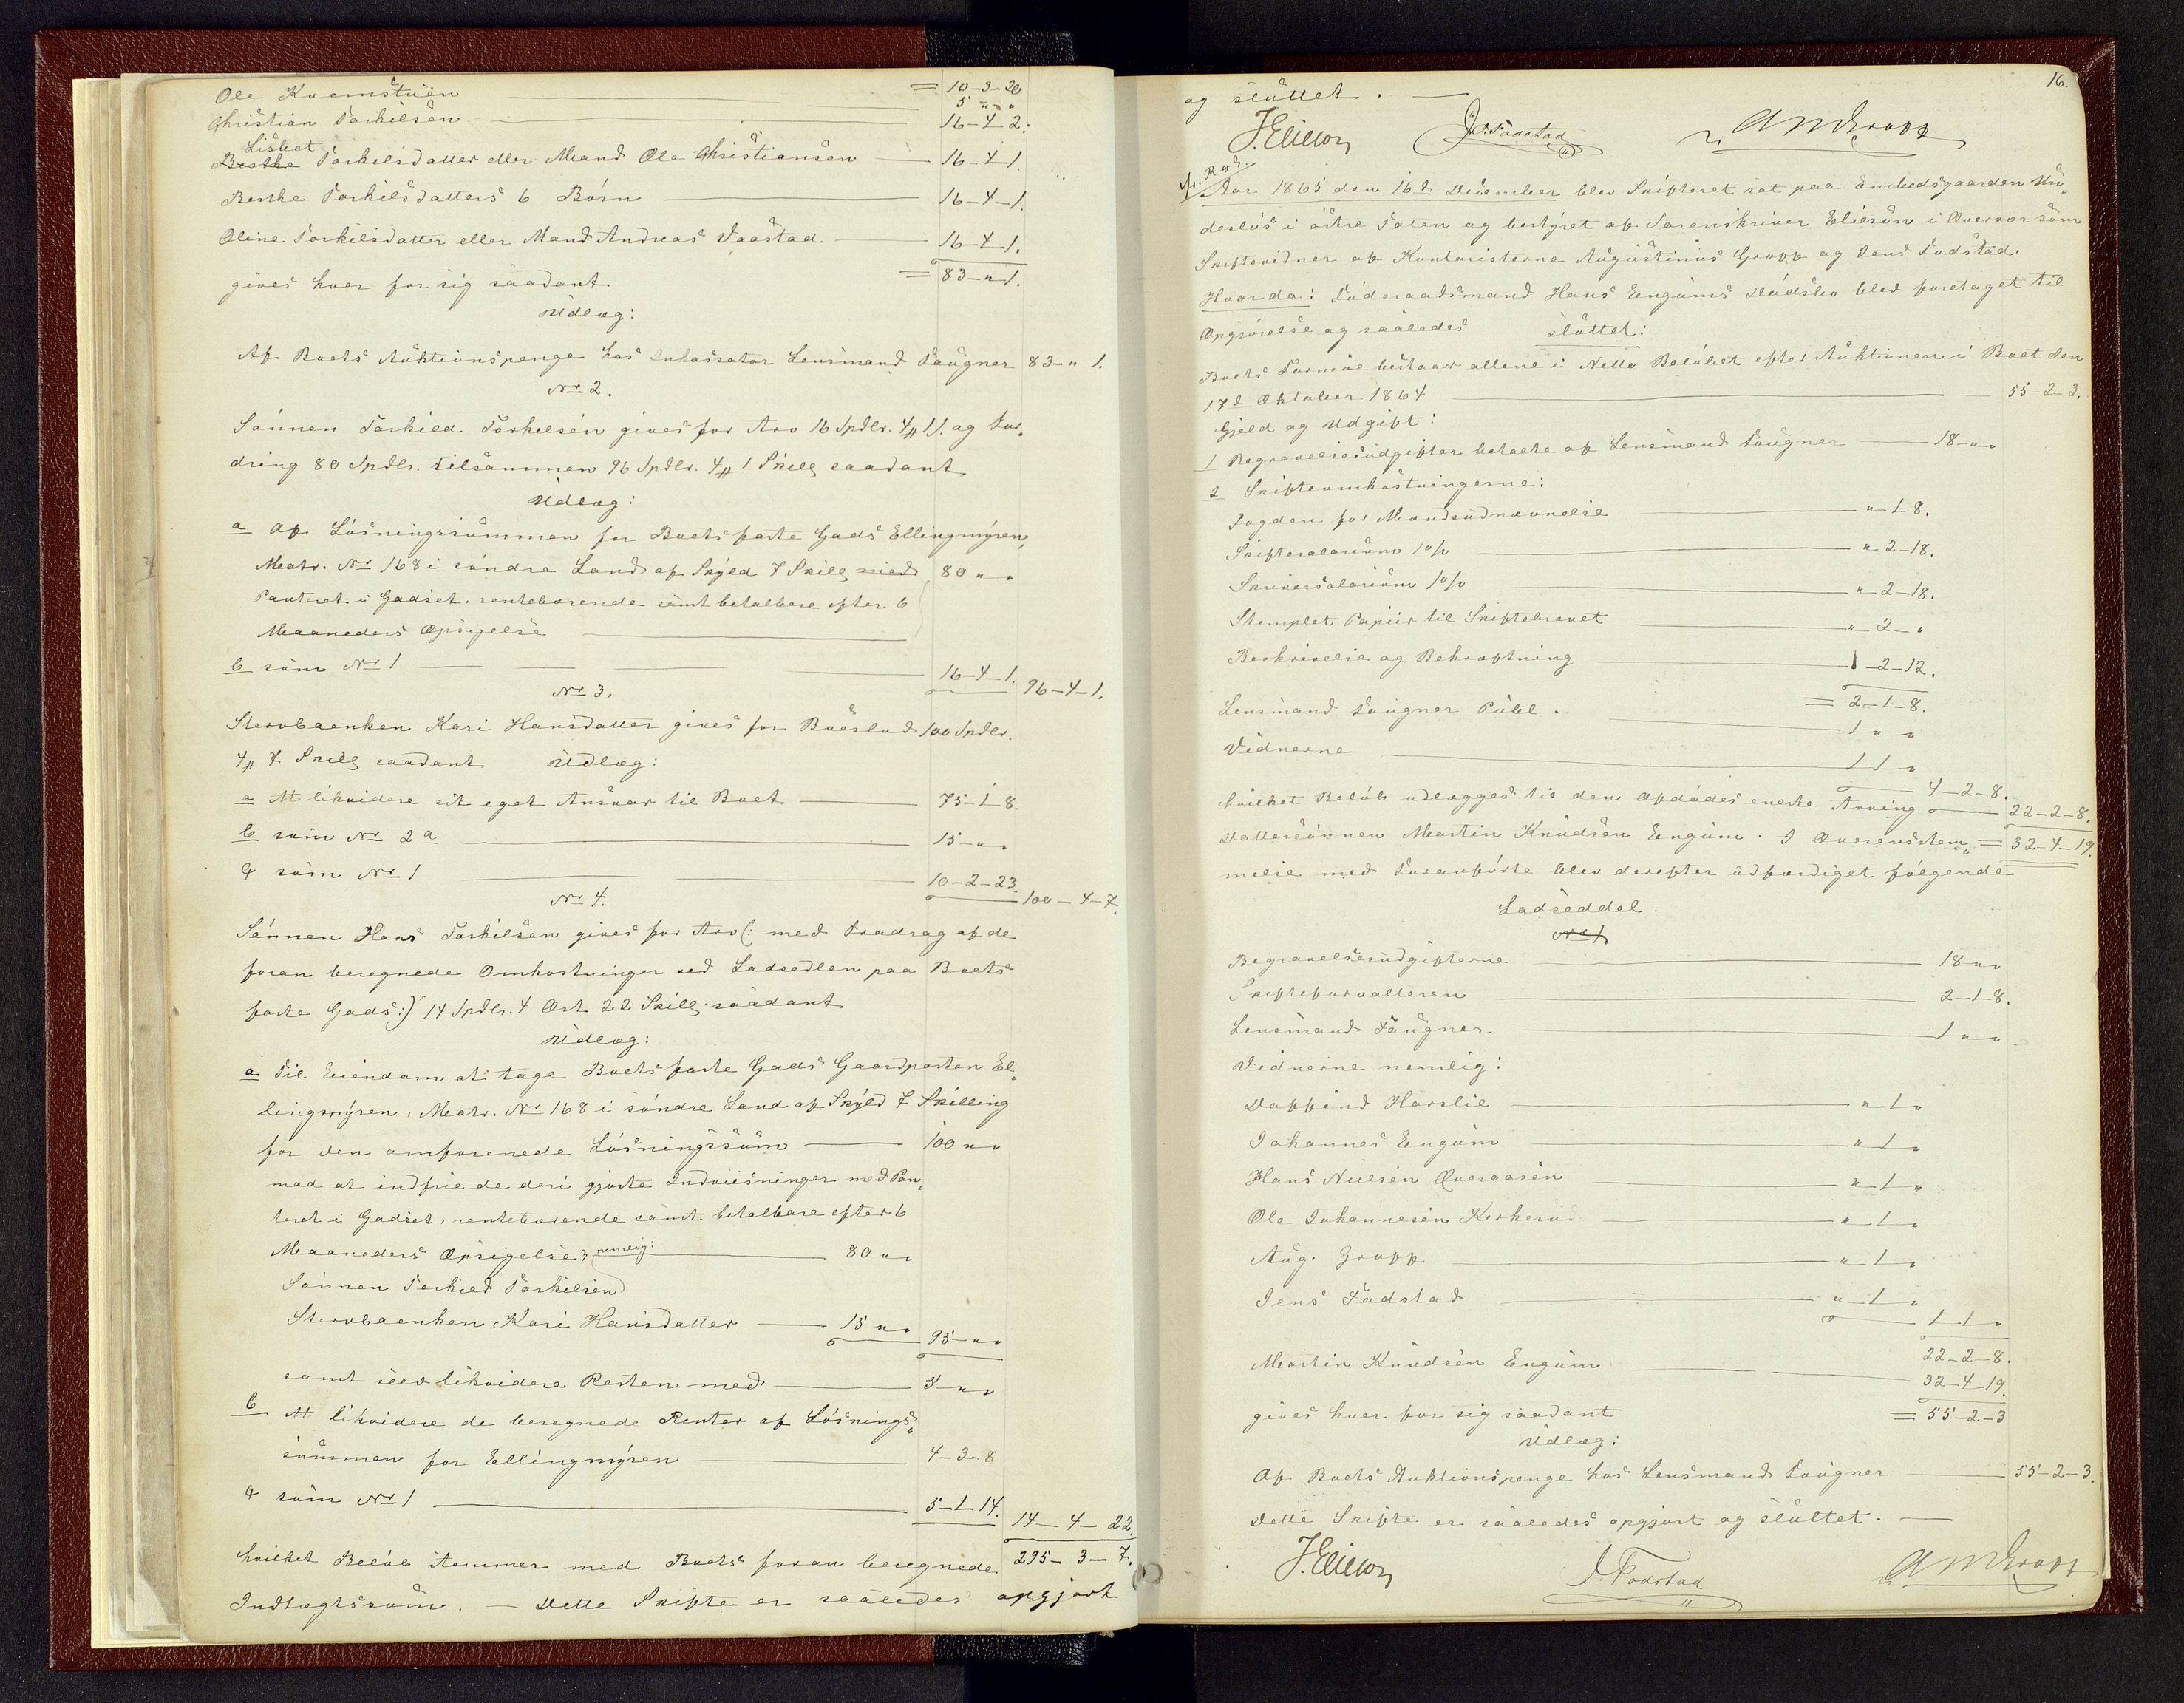 Ole Kvernstuen = 10-3-20
5 " "
Christian Torkilsen 16-4-2.
Lisbet
Berthe Torkilsdatter eller Mand Ole Christiansen 16-4-1.
Berthe Torkilsdatters 6 Børn 16-4-1.
Oline Torkilsdatter eller Mand Andreas Vaastad 16-4-1.
gives hver for sig saadant = 83 - " 1.
Udlæg:
Af Boets Auktionspenge hos Inkassator Lensmand Tougner 83 - " 1.
No 2.
Sønnen Torkild Torkilsen gives for Arv 16 Spdlr. 4 " 1 /. og For„
dring 80 Spdlr. tilsammen 96 Spdlr. 4 " 1 Skill saadant
Udlæg:
a Af Løsningssummen for Boets faste Gods Ellingmyren,
Matr. No 168 i søndre Land af Skyld 7 Skill med 80 " "
Panteret i Godset, rentebærende samt betalbare efter 6
Maaneders Opsigelse
b som No 1 16-4-1.
96-4-1.
No 3.
Stervboenken Kari Hansdatter gives for Boeslod 100 Spdlr.
4 " 7 Skill saadant Udlæg:
a At likvidere sit eget Ansvar til Boet 75-1-8.
b som No 2 a 15 - " "
c som No 1 10-2-23.
100-4-7.
No 4.
Sønnen Hans Torkilsen gives for Arv (: med Fradrag af de
foran beregnede Omkostninger ved Lodsedlen paa Boets
faste Gods:) 14 Spdlr. 4 Ort 22 Skill. saadant
Udlæg:
a Til Eiendom at tage Boets faste Gods Gaardparten El„
lingmyren, Matr. No 168 i søndre Land af Skyld 7 Skilling
for den omforenede Løsningssum 100 " "
mod at indfrie de deri gjorte Indviisninger med Pan„
teret i Godset, rentebærende samt betalbare efter 6
Maaneders Opsigelse, nemlig: 80 " "
Sønnen Torkild Torkilsen
Stervboenken Kari Hansdatter 15 " " 95 - " "
samt selv likvidere Resten med 5 - " "
b At likvidere de beregnede Renter af Løsnings„
summen for Ellingmyren 4-3-8
c som No 1 5-1-14.
14-4-22.
hvilket Beløb stemmer med Boets foran beregnede 295-3-7.
Indtægtssum. — Dette Skifte er saaledes opgjort
16.
og sluttet. —
J. Elieson J. Fodstad A M Gropp
Aar 1865 den 16d December blev Skifteret sat paa Embedsgaarden Un„
desløs i østre Toten og bestyret af Sorenskriver Elieson i Overvær som
Skiftevidner af Kontoristerne Augustinus Gropp og Jens Fodstad.
Hvorda: Føderaadsmand Hans Engums Dødsbo blev foretaget til
Opgjørelse og saaledes sluttet:
Boets Formue bestaar allene i Netto Beløbet efter Auktionen i Boet den
17d Oktober 1864 55-2-3.
Gjeld og Udgift:
1 Begravelsesudgifter betalte af Lensmand Tougner 18 - " "
2 Skifteomkostningerne:
Fogden for Mandsudnævnelse " 1-8.
Skiftesalarium 1 o/o " 2-18.
Skriversalarium 1 o/o " 2-18.
Stemplet Papiir til Skiftebrevet " 2 - "
Beskrivelse og Bekræftning 1-2-12.
= 2-1-8.
Lensmand Tougner Publ. 1 " "
Vidnerne 1 1 "
4-2-8.
hvilket Beløb udlægges til den Afdødes eneste Arving 22-2-8.
Dattersønnen Martin Knudsen Engum. I Overensstem„ = 32-4-19.
melse med Foranførte blev derefter udfærdiget følgende
Lodseddel.
No 1
Begravelsesudgifterne 18 " "
Skifteforvalteren 2-1-8.
Lensmand Tougner. 1 " "
Vidnerne nemlig:
Daffind Horslie " 1 "
Johannes Engum " 1 "
Hans Nielsen Overaasen " 1 "
Ole Johannesen Kirkerud " 1 "
Aug. Gropp " 1 "
Jens Fodstad " 1 "
1 1 "
22-2-8.
Martin Knudsen Engum 32-4-19.
gives hver for sig saadant = 55-2-3
Udlæg:
Af Boets Auktionspenge hos Lensmand Tougner 55-2-3.
Dette Skifte er saaledes opgjort og sluttet. —
J. Elieson J. Fodstad A M Gropp